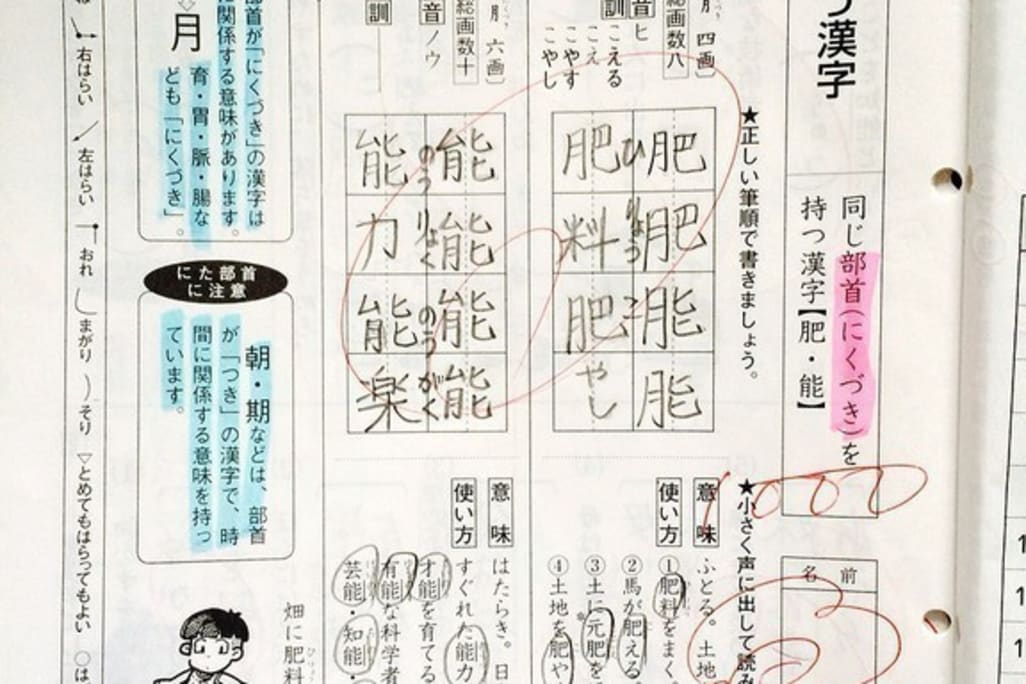 漢字
同じ部首(にくづき)を
持つ漢字【肥・能】
名 前
★正しい筆順で書きましょう。
★小さく声に出して読み
月 四画〕
総画数八
音 ヒ
訓 こえる
こえ
こやす
こやし
肥肥能肥
ひ りょう こ
肥料肥やし
意 味
ふとる。土地
使い方
①肥料をまく。
②馬が肥える。
③土に元肥を
④土地を肥や
月 六画〕
総画数十
音 ノウ
訓
能能能能
のう りょく のう がく
能力能楽
意 味
はたらき。
使い方
すぐれた能力
才能を育てる
有能な科学者
芸能・知能・
部首が「にくづき」の漢字は
に関係する意味があります。
月 育・胃・脈・腸な
ども「にくづき」。
にた部首
に注意
朝・期などは、部首
が「つき」の漢字で、時
間に関係する意味を持っ
ています。
畑に肥料
右はらい
左はらい
おれ
まがり
そり
▽とめてもはらってもよい